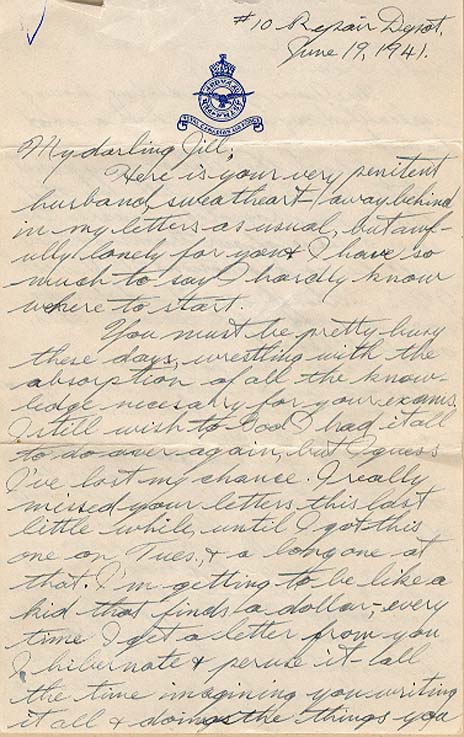 #10 Repair Depot,
June 19, 1941.
ROYAL CANADIAN AIR FORCE
My darling Jill;
Here is your very penitent
husband, sweetheart - away behind
in my letters as usual, but awf-
ully lonely for you & I have so
much to say I hardly know
where to start.
You must be pretty busy
these days, wrestling with the
absorption of all the know-
ledge necessary for your exams.
I still wish to God I had it all
to do over again, but I guess
I've lost my chance. I really
missed your letters this last
little while, until I got this
one on Tues., & a long one at
that. I'm getting to be like a
kid that finds a dollar, - every
time I get a letter from you
I hibernate & peruse it - all
the time imagining you writing
it all & doing the things you